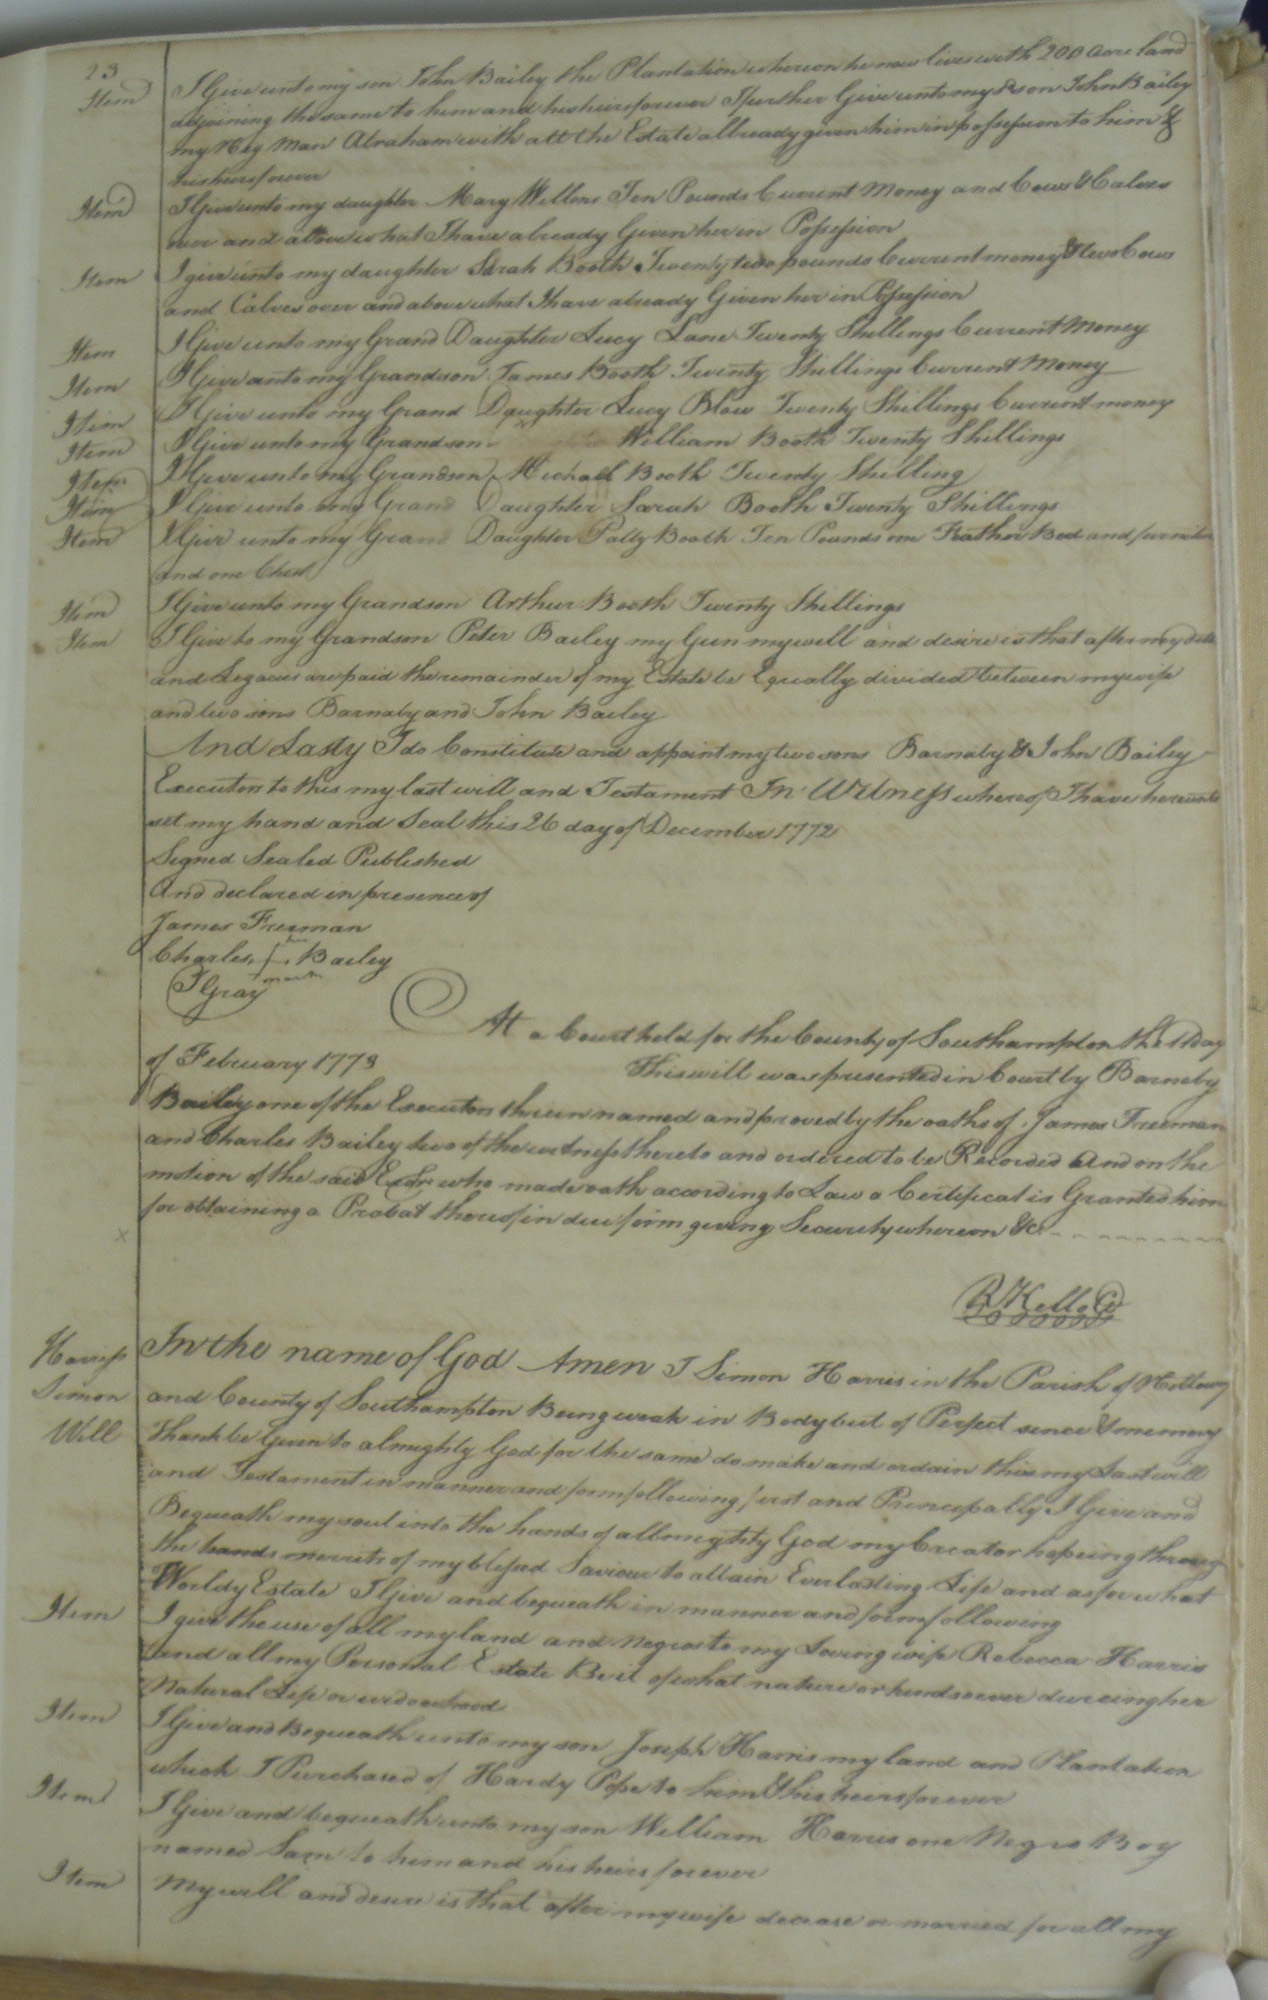 23
Item I Give unto my son John Bailey the Plantation whereon he now lives with 200 Acre land
adjoining the same to him and his heirs forever I further Give unto my Son John Bailey
my Neg Man Abraham with all the Estate allready given him in possession to him &
his heirs forever
Item I Give unto my daughter Mary Ten Pounds Current Money and Cows & Calves
over and above what I have already Given her in Possession
Item I give unto my daughter Sarah Booth Twenty two pounds Current money & two Cows
and Calves over and above what I have already Given her in Possession
Item I Give unto my Grand Daughter Lucy Lane Twenty Shillings Current Money
Item I Give unto my Grandson James Booth Twenty Shillings Current Money
Item I Give unto my Grand Daughter Lucy Blow Twenty Shillings Current money
Item I Give unto my Grandson William Booth Twenty Shillings
Item I Give unto my Grandson Michael Booth Twenty Shilling
Item I Give unto my Grand Daughter Sarah Booth Twenty Shillings
Item I Give unto my Grand Daughter Patty Booth Ten Pounds one Feather Bed and furniture
and one Chest
Item I Give unto my Grandson Arthur Booth Twenty Shillings
Item I Give to my Grandson Peter Bailey my Gun my will and desire is that after my debts
and Legaces are paid the remainder of my Estate be Equally divided between my wife
and two sons Barnaby and John Bailey
And Lasty I do Constitute and appoint my two sons Barnaby & John Bailey
Executors to this my last will and Testament In Witness whereof I have hereunto
set my hand and Seal this 26 day of December 1772
Signed Sealed Published
And declared in presence of
James Freeman
Charles his Bailey
mark
J Gray
At a Court held for the County of Southampton the 11 Day
of February 1773 This will was presented in Court by Barnaby
Bailey one of the Executors therein named and proved by the oaths of James Freeman
and Charles Bailey two of the witness thereto and ordered to be Recorded And on the
motion of the said Exor who made oath according to Law a Certificat is Granted him
for obtaining a Probat thereof in due form giving Security whereon &c
R Kello
Harriss In the name of God Amen I Simon Harris in the Parish of Nottoway
Simon and County of Southampton Being weak in Body but of Perfect sence & memory
Will Thank be Given to almighty God for the same do make and ordain this my Last will
and Testament in manner and form following first and Principally I Give and
Bequeath my soul into the hands of allmighty God my Creator hopeing throug
the hands merrits of my blessed Saviour to attain Everlasting Life and as for what
Worldy Estate I Give and bequeath in manner and form following
Item I give the use of all my land and negros to my Loving wife Rebecca Harris
and all my Personal Estate Be it of what nature or kind soever dureing her
Natural Life or widowhood
Item I Give and Bequeath unto my son Joseph Harris my land and Plantation
which I Purchased of Hardy Pope to him & his heirs forever
Item I Give and bequeath unto my son William Harris one Negro Boy
named Sam to him and his heirs forever
Item My will and desire is that after my wife decease or married for all my